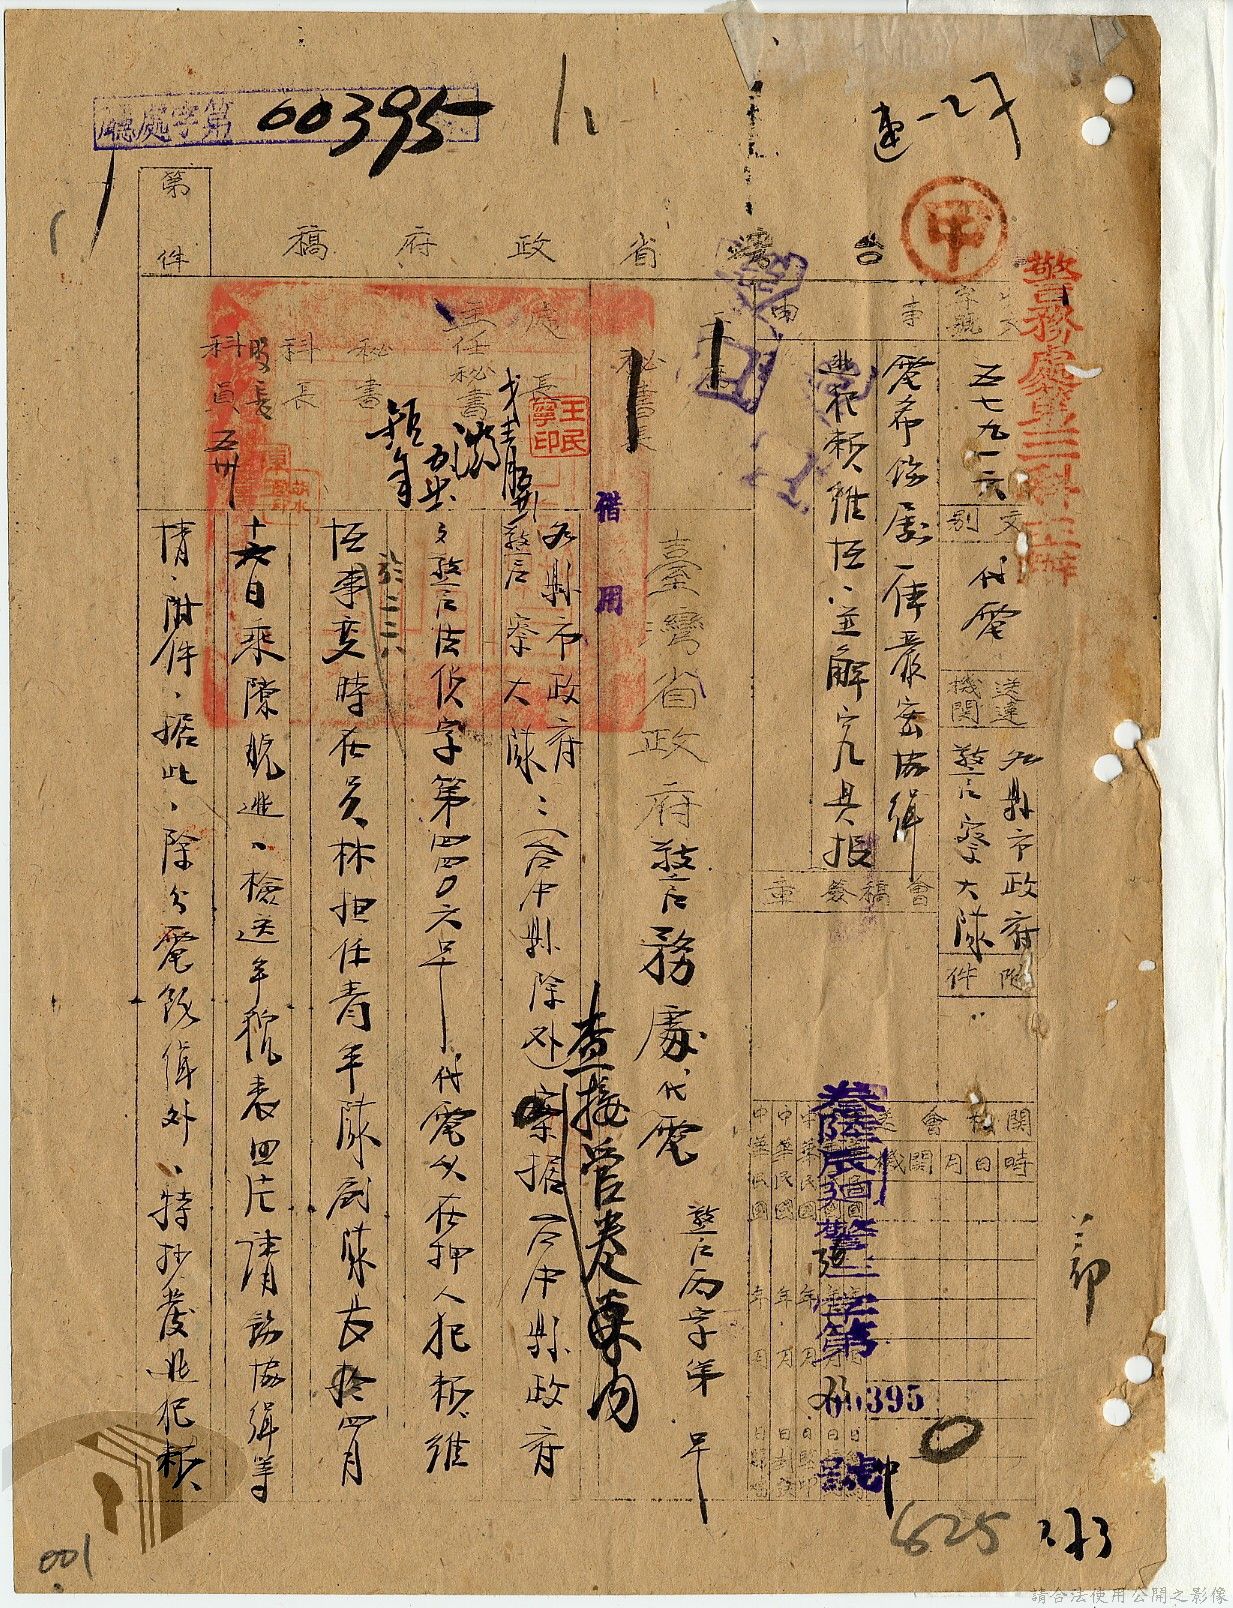 處字第 00395
甲
台灣省政府稿
第 件
警務處第三科主辦
五七九一六
文別
代電
送達機關
各縣市政府
警察大隊
附件
事由
電希飭屬一体嚴密協緝
逃犯賴維恒、並解究具報
會稿發章
送會機關
機關月日時
秘書長
處長
王民寧印
主任秘書
秘書
科長
股長
科員
借用
臺灣省政府警務處代電
警丙字第 号
叁陸辰迴警三字第
00395
號
查接管卷案內
各縣市政府
警察大隊
台中縣除外
案据台中縣政府
警法偵字第四四〇六号代電以在押人犯賴維
恒事變時在員林担任青年隊副隊長於四月
於二二八
十六日乘隙脫逃、檢送年貌表照片請飭協緝等
情、附件、據此、除分電飭緝外、特抄發逃犯賴
625
001
請合法使用公開之影像